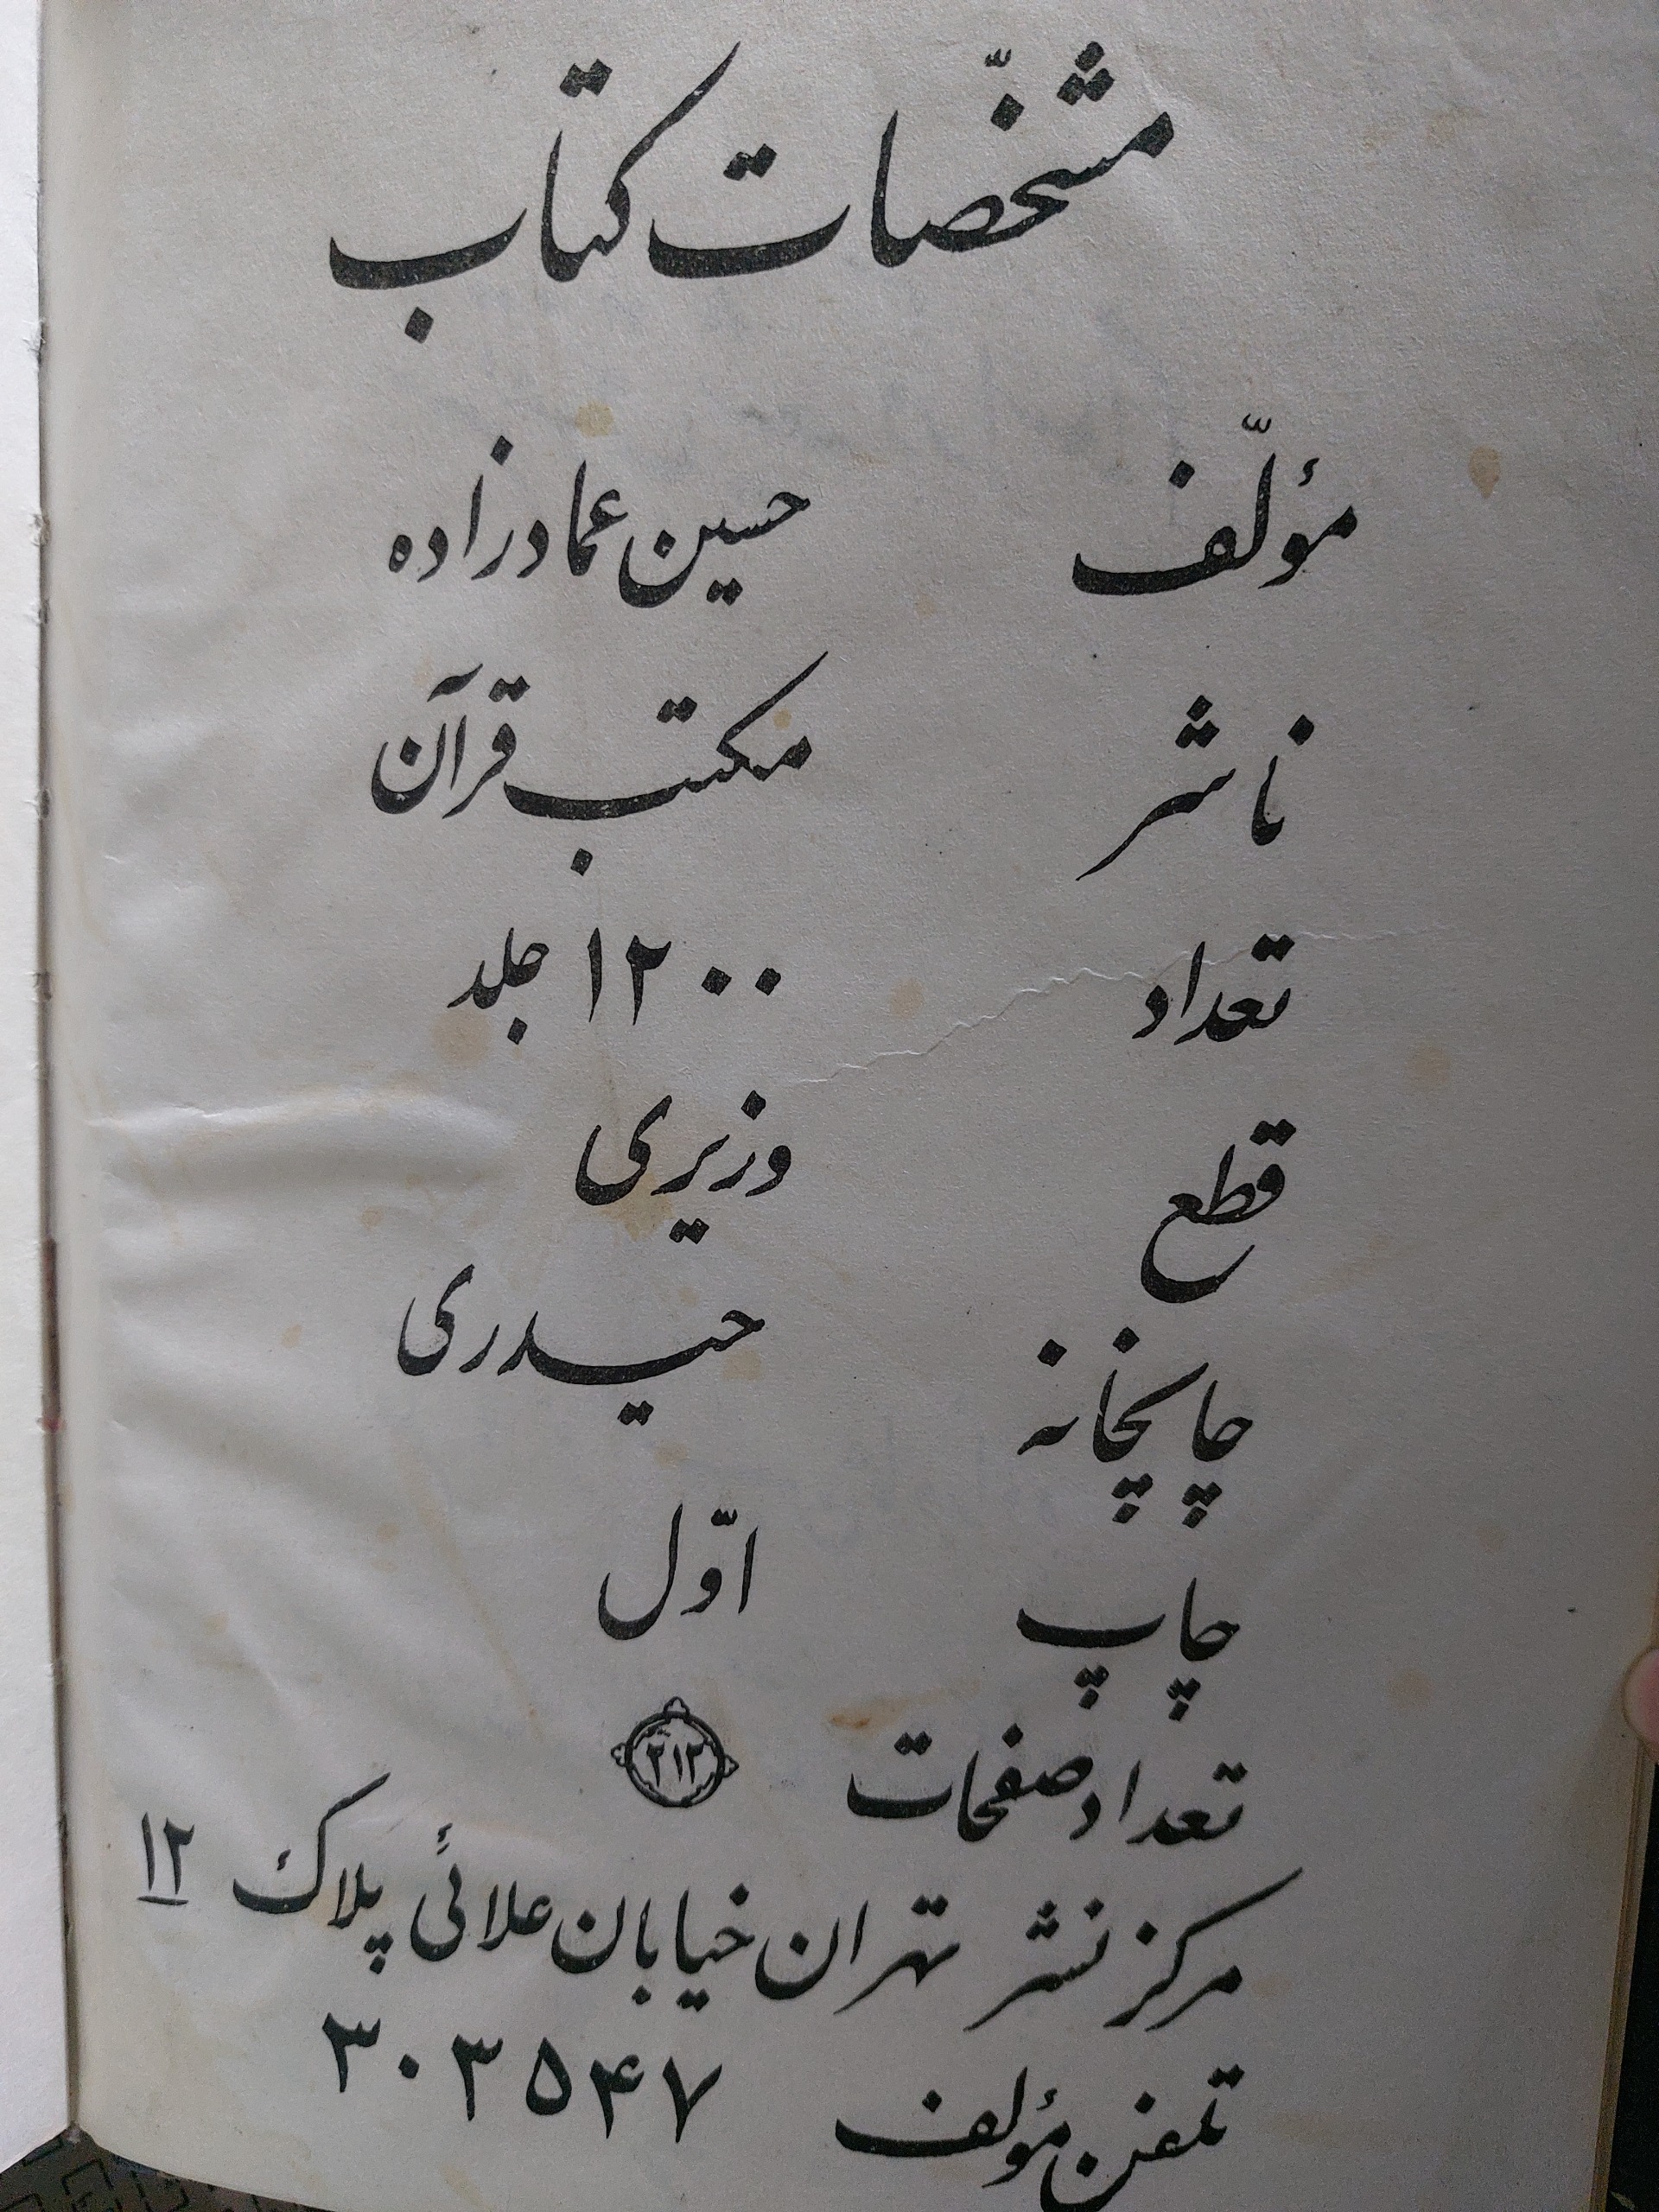 مشخّصات کتاب
مؤلّف حسین عمادزاده
ناشر مکتب قرآن
تعداد ۱۲۰۰ جلد
قطع وزیری
چاپخانه حیدری
چاپ اوّل
تعداد صفحات ۲۱۲
مرکز نشر تهران خیابان علائی پلاک ۱۲
تلفن مؤلف ۳۰۳۵۴۷